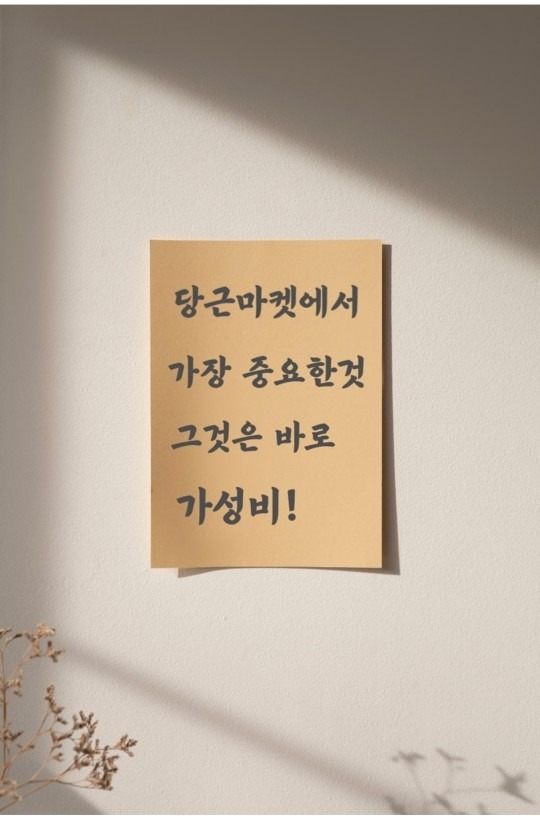 당근마켓에서
가장 중요한것
그것은 바로
가성비!